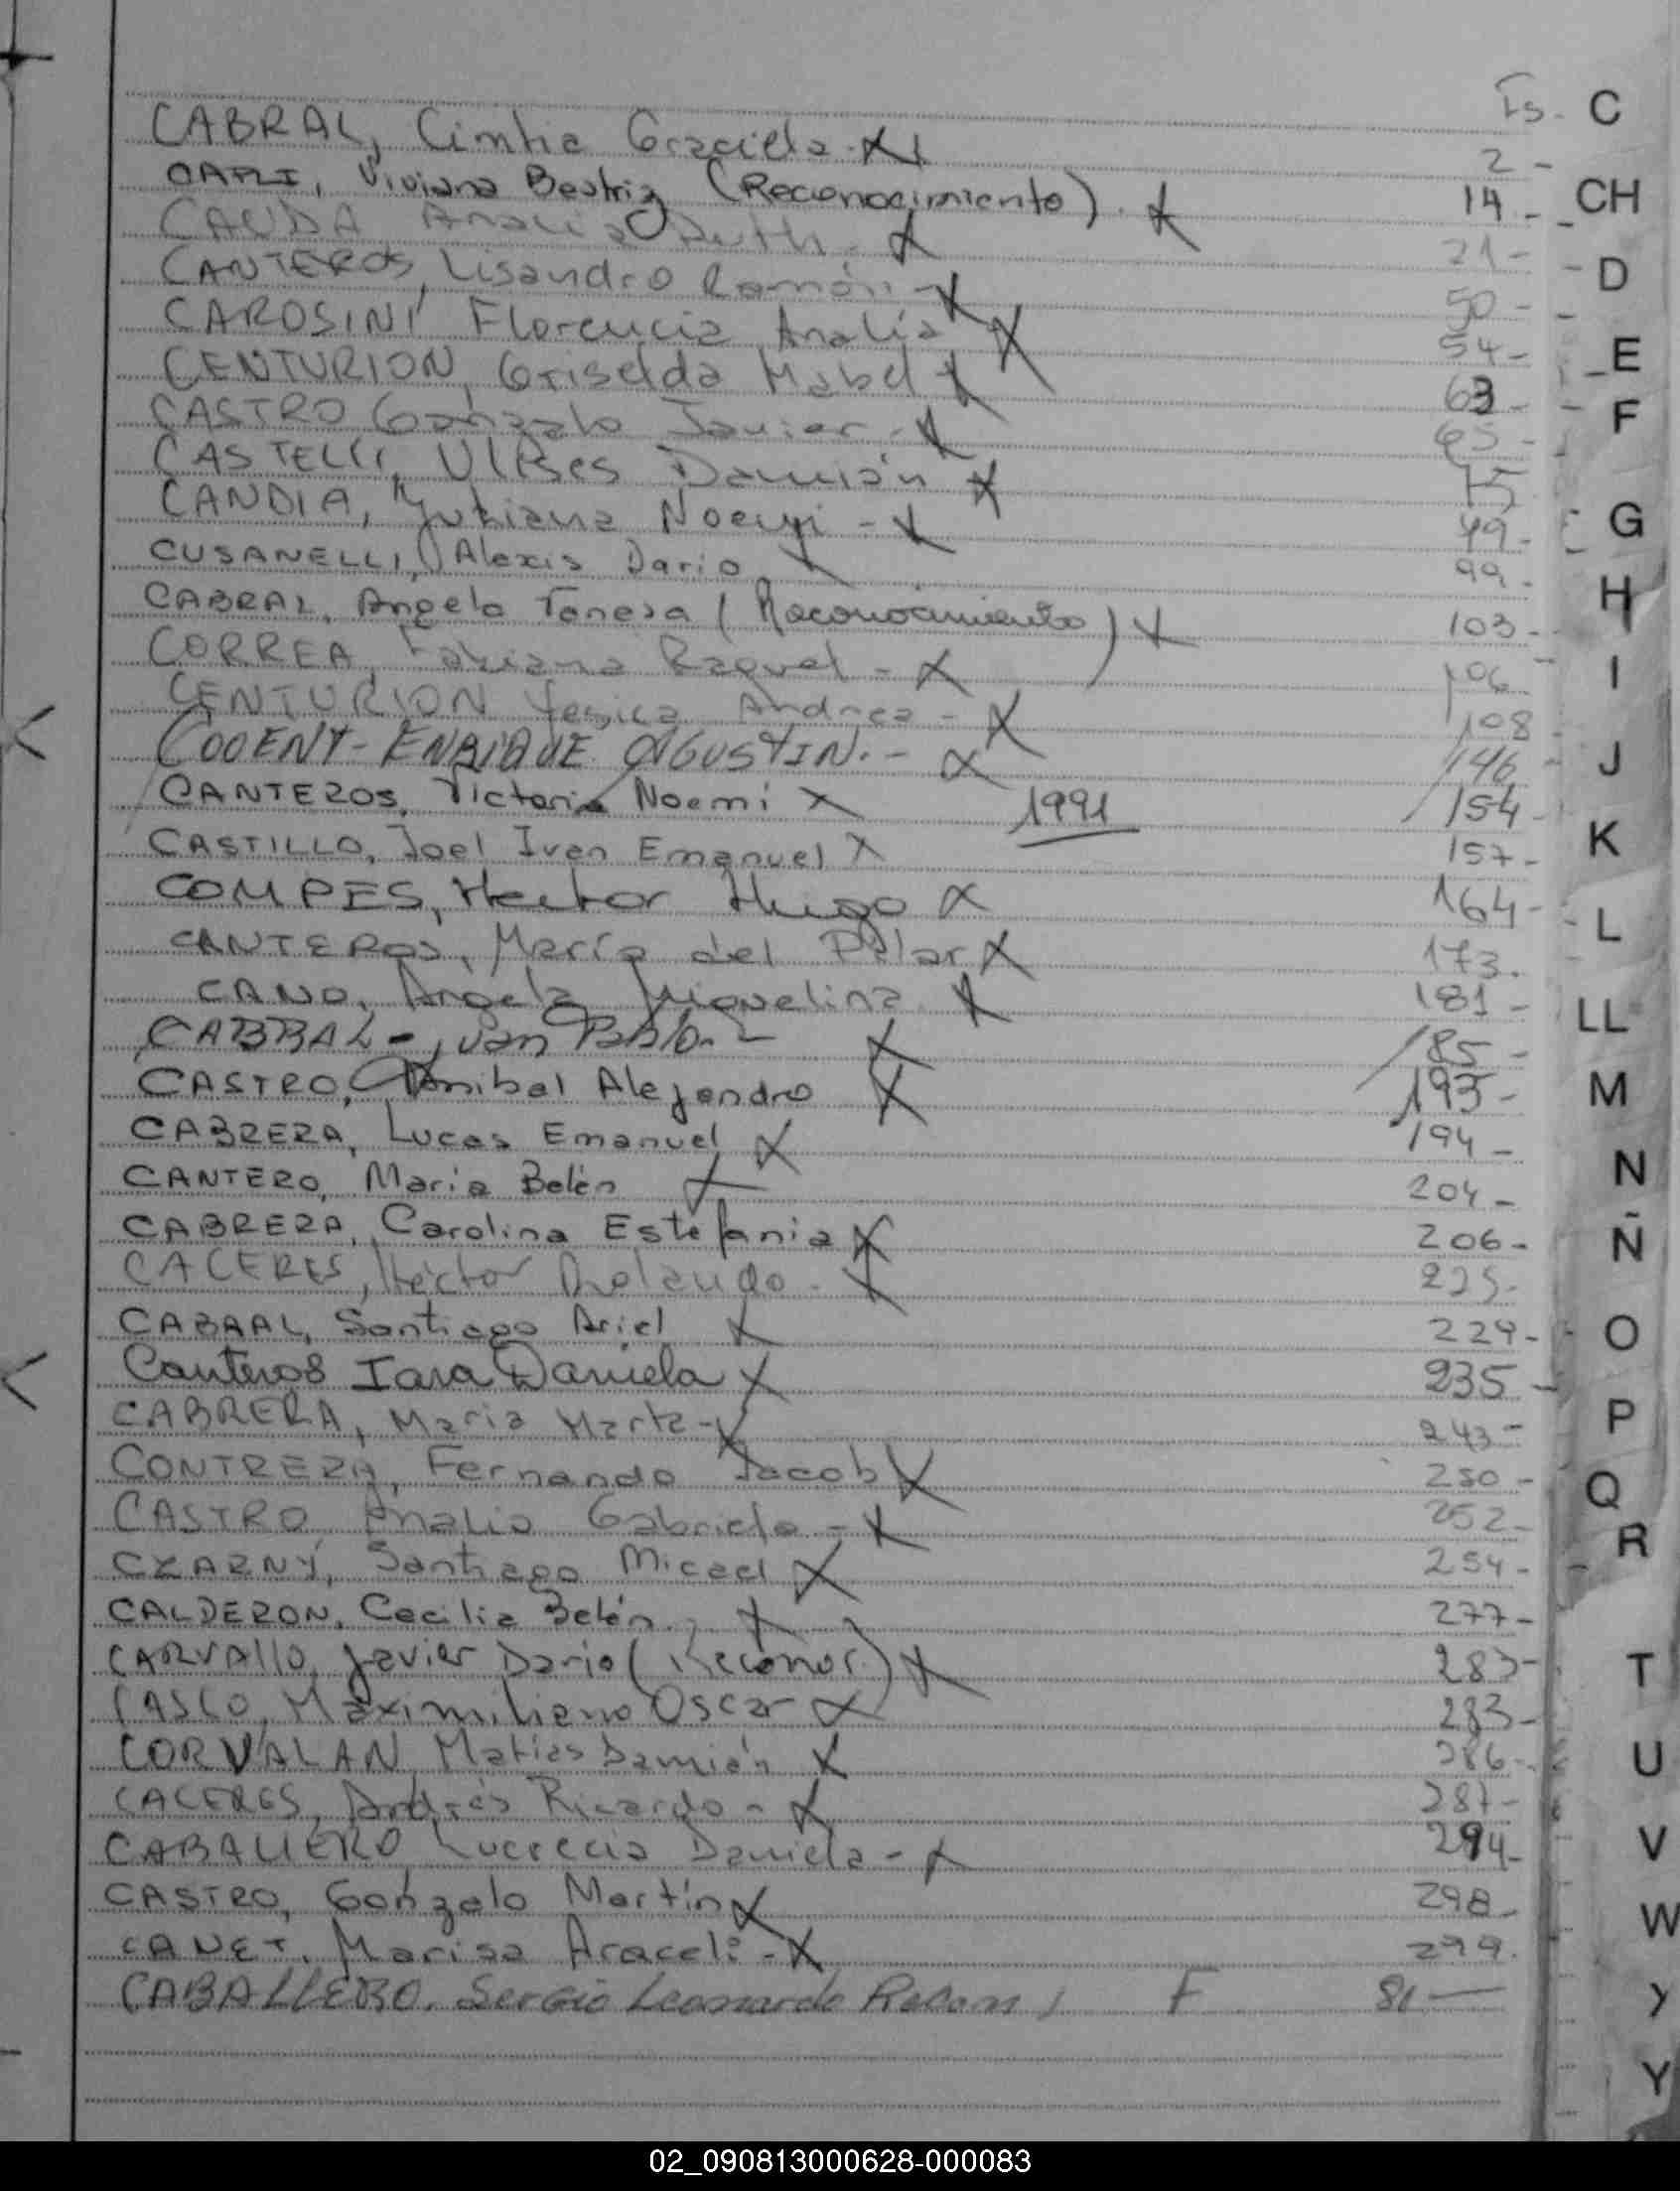 Fs.
CABRAL, Cintia Graciela. X 2 -
CAPLI, Viviana Beatriz (Reconocimiento). X 14 -
CAUDA Analia Ruth. X 21 -
CANTEROS, Lisandro Ramón - X 50 -
CAROSINI Florencia Analía X 54 -
CENTURION, Griselda Mabel X 63 -
CASTRO Gonzalo Javier - X 65 -
CASTELLI, Ulises Damián X 75
CANDIA, Noemi - X
CUSANELLI, Alexis Dario X 99 -
CABRAL, Angela Vanesa (Reconocimiento) X 103 -
CORREA, Fabiana Raquel - X 106
CENTURION Yesica Andrea - X 108
ENRIQUE AGUSTIN. - X 146 -
CANTEROS, Victoria Noemi X 1991 154 -
CASTILLO, Joel Ivan Emanuel X 157 -
COMPES, Hector Hugo X 164 -
CANTEROS, María del Pilar X 173.
CANO, Angela Miquelina X 181 -
CABRAL - Juan Pablo. - X 185 -
CASTRO, Anibal Alejandro X 193 -
CABRERA, Lucas Emanuel X 194 -
CANTERO, Maria Belén X 204 -
CABRERA, Carolina Estefania X 206 -
CACERES, Héctor Rolando - X 225 -
CABRAL, Santiago Ariel X 229 -
Canteros Iara Daniela X 235 -
CABRERA, Maria Marta - X 243 -
CONTRERA, Fernando Jacob X 250 -
CASTRO, Analia Gabriela - X 252 -
CZARNY, Santiago Micael X 254 -
CALDERON, Cecilia Belén. X 277 -
CARVAllO, Javier Dario (Reconoc.) X 283 -
CASCO, Maximiliano Oscar X 283 -
CORVALAN Matias Damián X 286 -
CACERES, Andrés Ricardo - X 287 -
CABALLERO Lucrecia Daniela - X 294 -
CASTRO, Gonzalo Martín X 298 -
CANET, Marisa Araceli - X 299.
CABALLERO. Sergio Leonardo Ramon, F 81 -
C
CH
D
E
F
G
H
I
J
K
L
LL
M
N
Ñ
O
P
Q
R
T
U
V
W
Y
Y
02_090813000628-000083